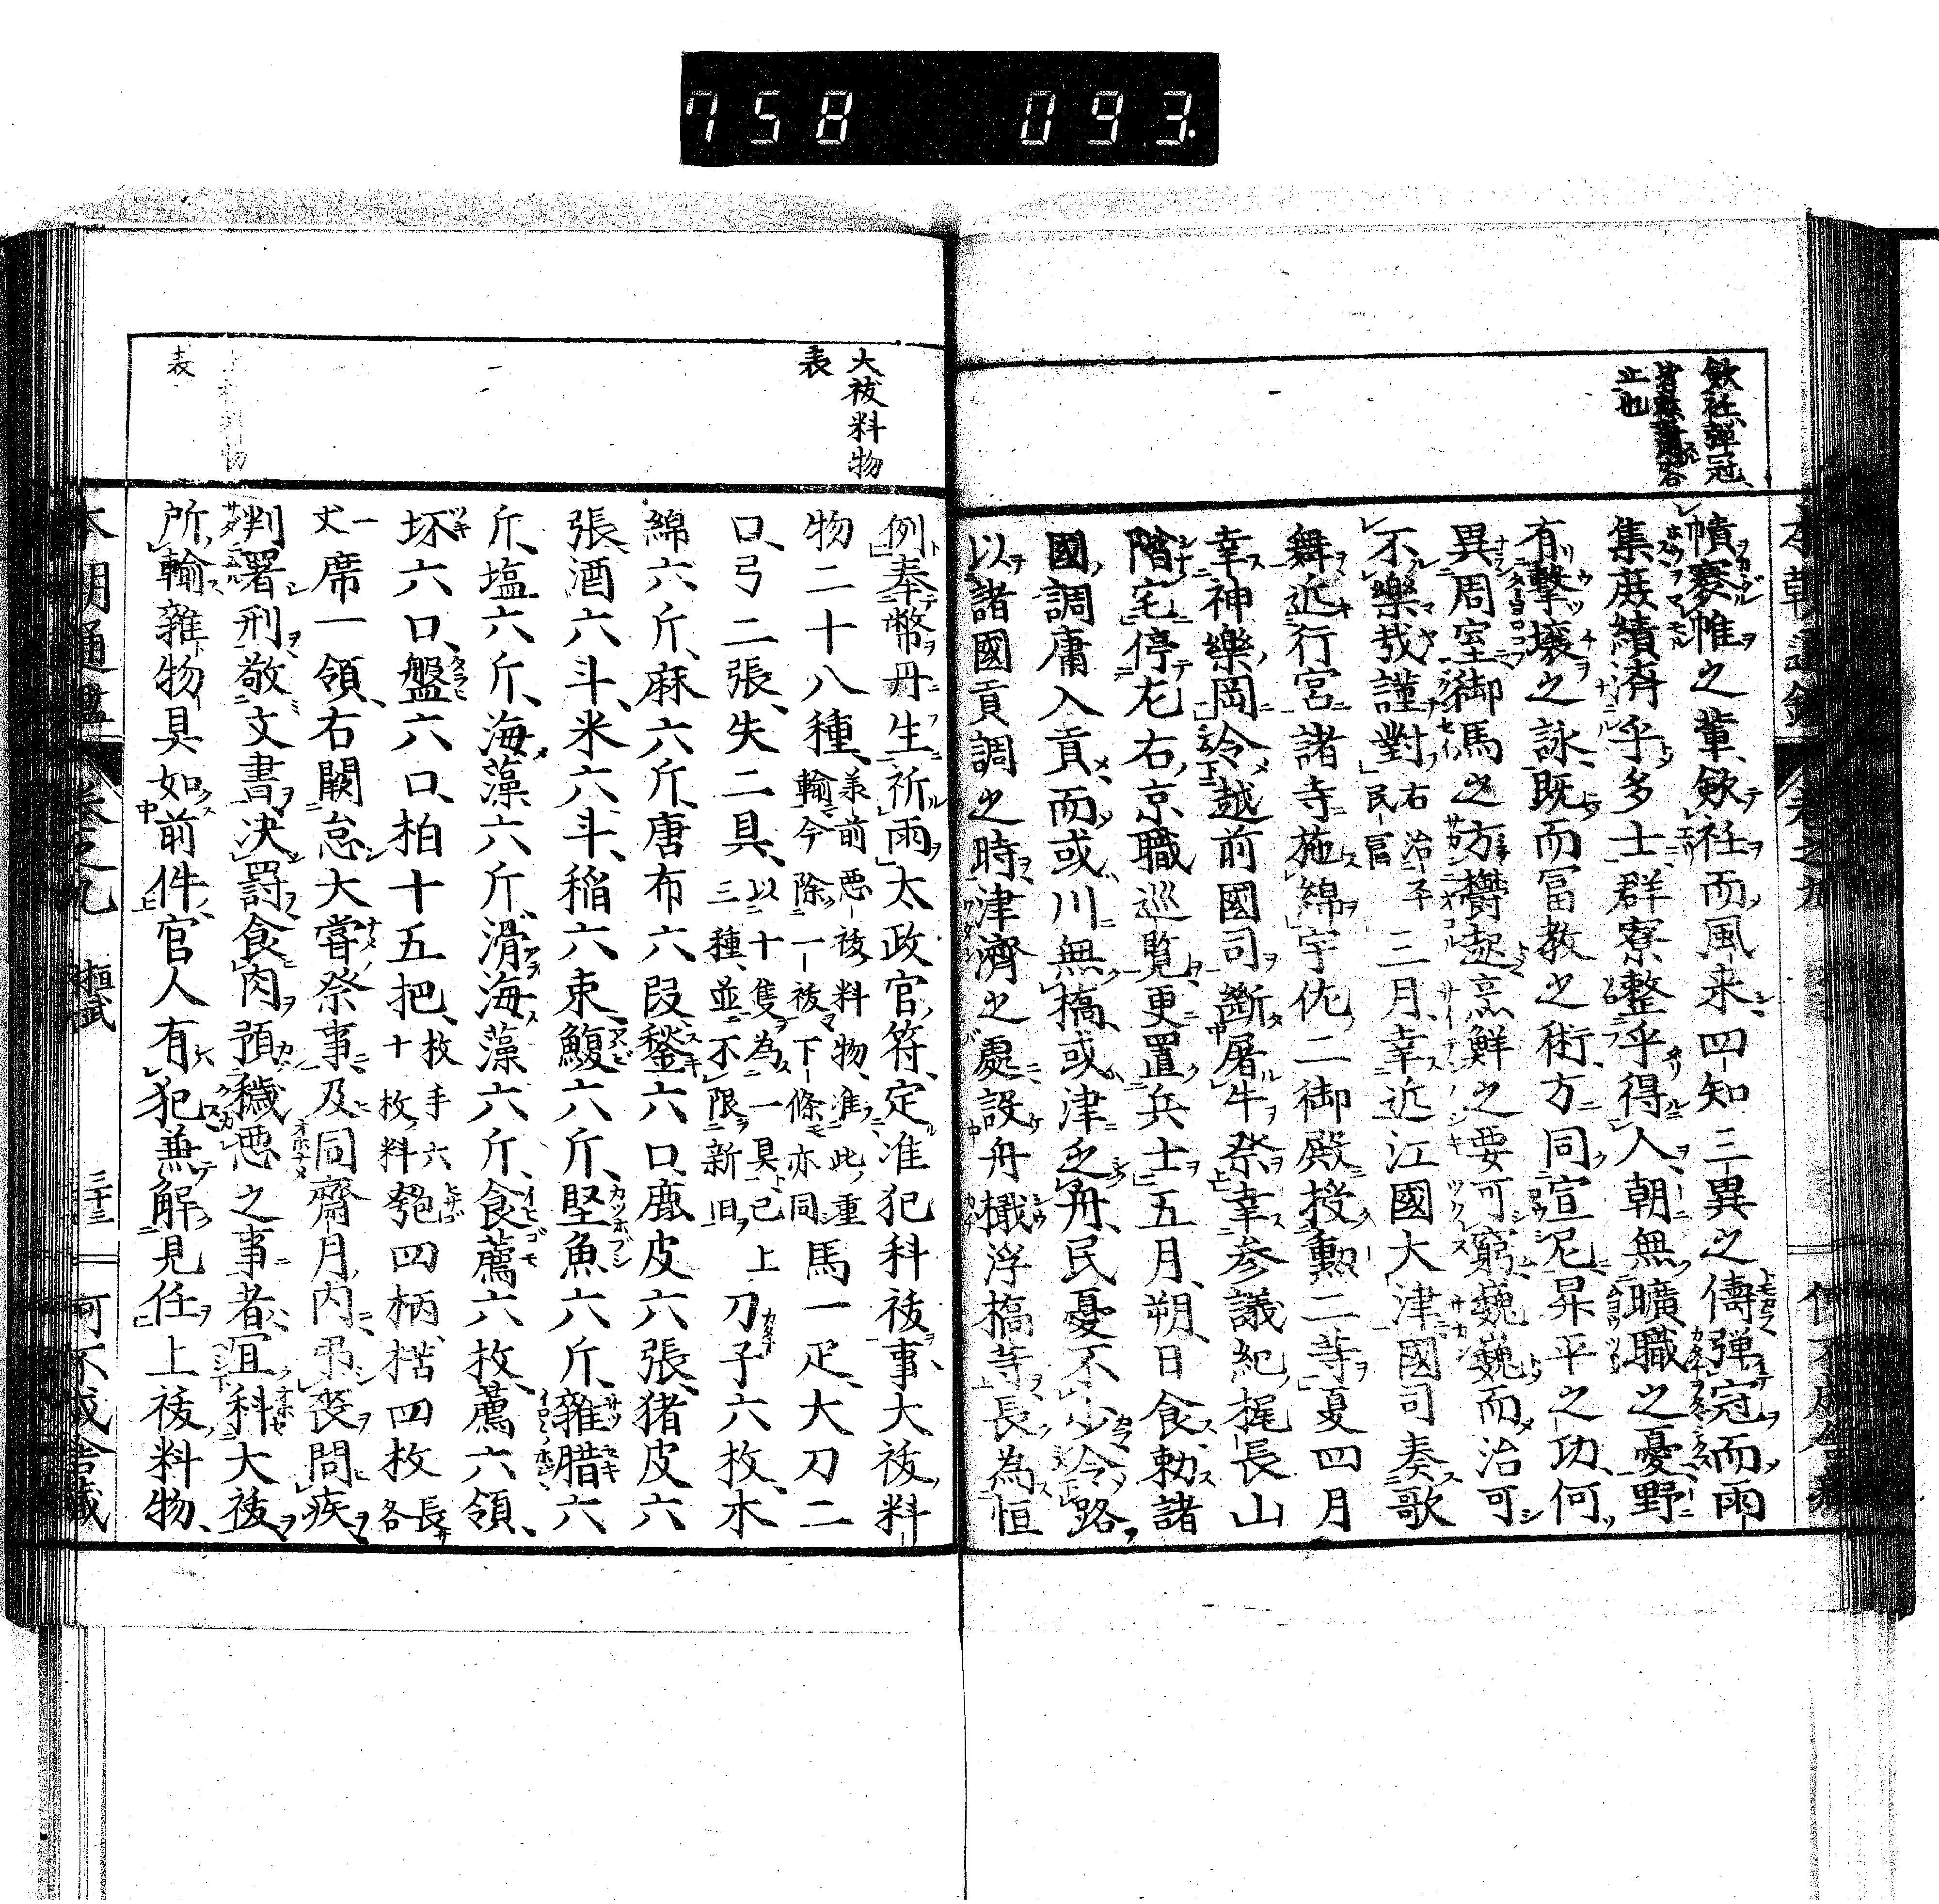 758 093.
歛衽、弾冠、
立也
幘褰帷之輩、歛衽而風来四知三異之儔弾冠而雨
集庶績済乎多士群寮整乎得人朝無曠職之憂野
有撃壌之詠既而冨教之術方同宣尼昇平之功何
異周室御馬之方欝起烹鮮之要可窮巍巍而治可
不樂哉謹對右治平民冨三月幸近江國大津國司奏歌
舞近行宮諸寺施綿宇佐二御殿授勲二等夏四月
幸神樂岡令越前國司断屠牛祭幸参議紀梶長山
階宅停左右京職巡覧更置兵士五月朔日食勅諸
國調庸入貢而或川無橋或津乏舟民憂不少令路
以諸國貢調之時津濟之處設舟檝浮橋等長為恒
大祓料物
表
例奉幣丹生祈雨太政官符定准犯科祓事大祓料
物二十八種、承前悪祓料物准此重輸今除一祓下條亦同馬一疋、大刀二
口、弓二張、矢二具、以十隻為一具已上三種並不限新旧刀子六枚、木
綿六斤、麻六斤、唐布六段鍫六口、鹿皮六張、猪皮六
張、酒六斗、米六斗、稲六束鰒六斤、堅魚六斤、雜腊六
斤、塩六斤、海藻六斤、滑海藻六斤、食薦六枚、薦六領、
坏六口、盤六口、柏十五把、枚手六十枚料匏四柄、楛四枚長各
一丈席一領、右闕怠大嘗祭事及同齋月内弔喪問疾
判署刑敬文書决罸食肉預穢悪之事者宜科大祓
所輸雜物具如前件官人有犯兼解見任上祓料物、
表
本朝通鑑 巻之九 桓武 三十三 何不成舎蔵